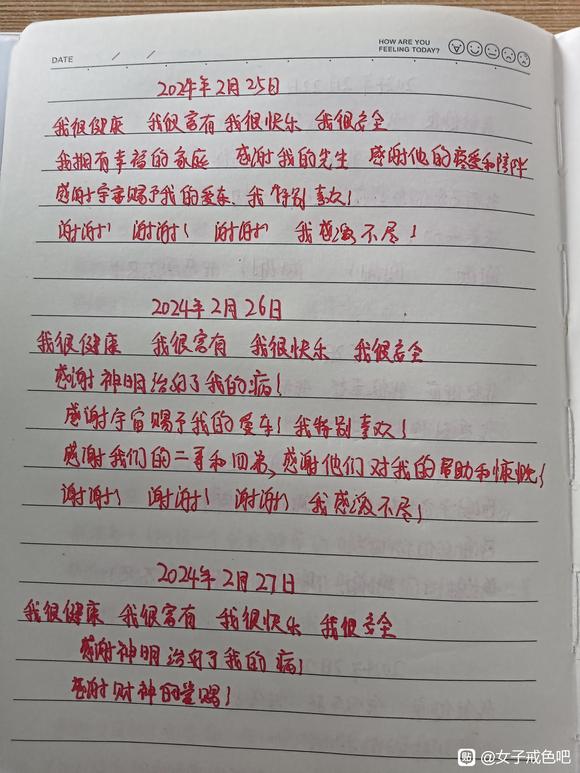 HOW ARE YOU
FEELING TODAY?
DATE / /
2024年2月25日
我很健康 我很富有 我很快乐 我很安全
我拥有幸福的家庭 感谢我的先生 感谢他的疼爱和陪伴
感谢宇宙赐予我的爱车、我特别喜欢!
谢谢! 谢谢! 谢谢! 我感激不尽!
2024年2月26日
我很健康 我很富有 我很快乐 我很安全
感谢神明治好了我的病!
感谢宇宙赐予我的爱车!我特别喜欢!
感谢我们的二哥和四弟、感谢他们对我的帮助和慷慨!
谢谢! 谢谢! 谢谢! 我感激不尽!
2024年2月27日
我很健康 我很富有 我很快乐 我很安全
感谢神明治好了我的病!
感谢财神的赏赐!
贴 @女子戒色吧